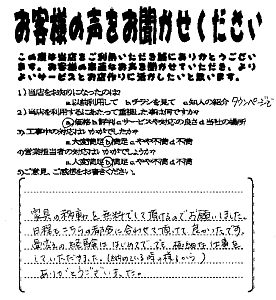 お客様の声をお聞かせください
この度は当店をご利用いただき誠にありがとうござい
ます。お客様の率直なお声を聞かせていただき、より
よいサービスとお店作りに活かしたいと思います。
1)当店をお知りになったのは?
a.以前利用して b.チラシを見て c.知人の紹介 タウンページで
2)当店を利用するにあたって重視した事は何ですか?
a.価格 b.評判 c.サービスや対応の良さ d.当社の場所
3)工事中の対応はいかがでしたか?
a.大変満足 b.満足 c.やや不満 d.不満
4)営業担当者の対応はいかがでしょうか
a.大変満足 b.満足 c.やや不満 d.不満
5)ご意見、ご感想をお書きください。
家具の移動も無料でして頂けるのでお願いしました。
日程もこちらの都合に合わせて頂けて良かったです。
はじめてで
していただきました。
ありがとうございました。